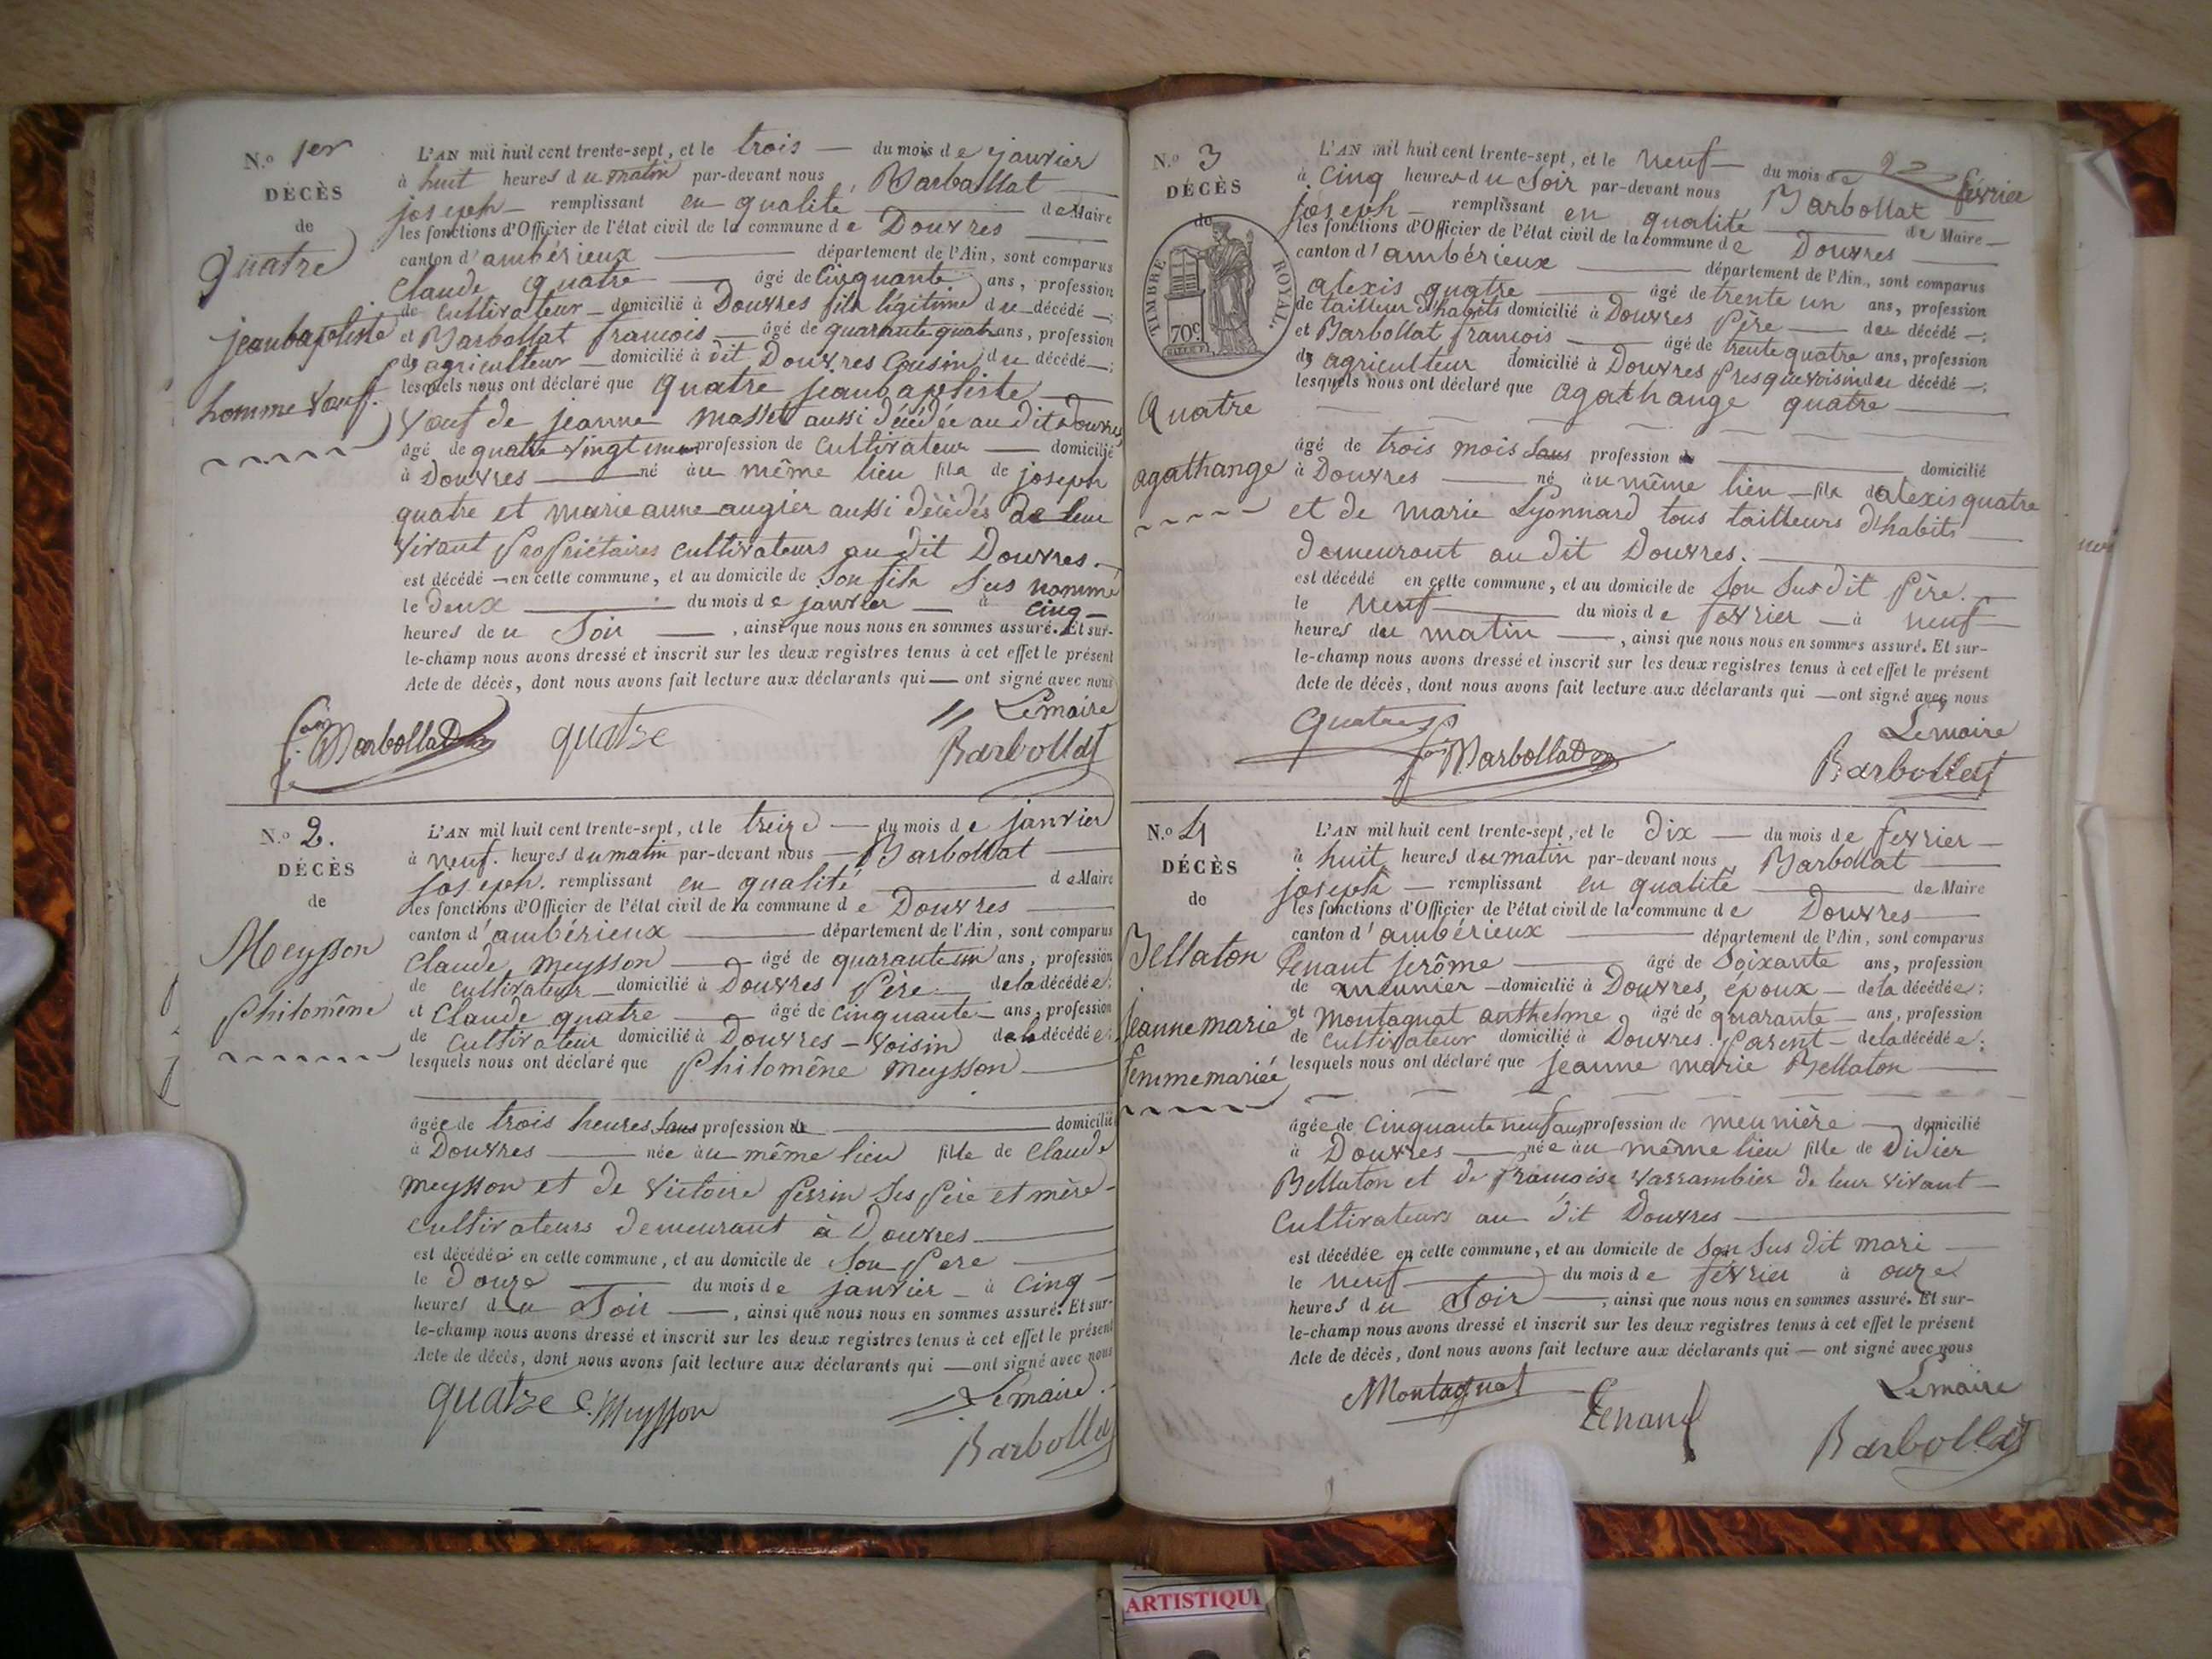 N.º 1er
DÉCÈS
de
Quatre
jeanbaptiste
homme veuf.
L'AN mil huit cent trente-sept, et le trois — du mois de janvier
à huit heures du matin par-devant nous Barbollat
joseph — remplissant en qualité de Maire
les fonctions d'Officier de l'état civil de la commune de Douvres
canton d'ambérieux département de l'Ain, sont comparus
Claude quatre âgé de Cinquante ans, profession
de cultivateur domicilié à Douvres fils légitime du décédé —;
et Barbollat francois âgé de quarante quatre ans, profession
de agriculteur domicilié à dit Douvres Cousin du décédé —;
lesquels nous ont déclaré que Quatre jeanbaptiste
veuf de jeanne Masset aussi décédée au dit Douvres
âgé de quatre vingt un ans profession de Cultivateur domicilié
à Douvres né au même lieu fils de joseph
quatre et marie anne augier aussi décédés de leur
vivant propriétaires cultivateurs au dit Douvres.
est décédé en cette commune, et au domicile de son fils sus nommé
le deux du mois de janvier à cinq
heures du Soir, ainsi que nous nous en sommes assuré. Et sur-
le-champ nous avons dressé et inscrit sur les deux registres tenus à cet effet le présent
Acte de décès, dont nous avons fait lecture aux déclarants qui — ont signé avec nous
Lemaire
fçois Barbollat quatre Barbollat
N.º 2.
DÉCÈS
de
Meysson
Philomène
L'AN mil huit cent trente-sept, et le treize — du mois de janvier
à neuf. heures du matin par-devant nous Barbollat
joseph. remplissant en qualité de Maire
les fonctions d'Officier de l'état civil de la commune de Douvres
canton d'ambérieux département de l'Ain, sont comparus
Claude Meysson âgé de quarante un ans, profession
de cultivateur domicilié à Douvres Père de la décédée;
et Claude quatre âgé de cinquante ans, profession
de cultivateur domicilié à Douvres — voisin de la décédée;
lesquels nous ont déclaré que Philomène Meysson
âgée de trois heures sans profession de domicilié
à Douvres née au même lieu fille de Claude
Meysson et de Victoire Perrin ses père et mère
cultivateurs demeurant à Douvres
est décédée en cette commune, et au domicile de son Pere
le Douze du mois de janvier à cinq
heures du Soir, ainsi que nous nous en sommes assuré. Et sur-
le-champ nous avons dressé et inscrit sur les deux registres tenus à cet effet le présent
Acte de décès, dont nous avons fait lecture aux déclarants qui — ont signé avec nous
quatre C. Meysson Lemaire
Barbollat
N.º 3
DÉCÈS
de
TIMBRE ROYAL.
70c.
Quatre
agathange
L'AN mil huit cent trente-sept, et le neuf — du mois de février
à Cinq heures du Soir par-devant nous Barbollat
joseph — remplissant en qualité de Maire
les fonctions d'Officier de l'état civil de la commune de Douvres
canton d'ambérieux département de l'Ain, sont comparus
alexis quatre âgé de trente un ans, profession
de tailleur d'habits domicilié à Douvres Père du décédé —;
et Barbollat francois âgé de trente quatre ans, profession
de agriculteur domicilié à Douvres presque voisin du décédé —;
lesquels nous ont déclaré que agathange quatre
âgé de trois mois sans profession de domicilié
à Douvres né au même lieu fils d'alexis quatre
et de marie Lyonnard tous tailleurs d'habits
demeurant au dit Douvres.
est décédé en cette commune, et au domicile de son susdit Père.
le neuf du mois de février à neuf
heures du matin, ainsi que nous nous en sommes assuré. Et sur-
le-champ nous avons dressé et inscrit sur les deux registres tenus à cet effet le présent
Acte de décès, dont nous avons fait lecture aux déclarants qui — ont signé avec nous
Quatre Lemaire
fçois Barbollat Barbollat
N.º 4
DÉCÈS
de
Bellaton
jeanne marie
femme mariée
L'AN mil huit cent trente-sept, et le Dix — du mois de fevrier
à huit heures du matin par-devant nous Barbollat
joseph — remplissant en qualité de Maire
les fonctions d'Officier de l'état civil de la commune de Douvres
canton d'ambérieux département de l'Ain, sont comparus
Tenant jerôme âgé de Soixante ans, profession
de meunier domicilié à Douvres, époux de la décédée;
et Montagnat anthelme âgé de quarante ans, profession
de Cultivateur domicilié à Douvres Parent de la décédée;
lesquels nous ont déclaré que jeanne marie Bellaton
âgée de Cinquante neuf ans profession de meunière domicilié
à Douvres née au même lieu fille de Didier
Bellaton et de françoise Varrambier de leur vivant
Cultivateurs au dit Douvres
est décédée en cette commune, et au domicile de son sus dit mari
le neuf du mois de février à onze
heures du Soir, ainsi que nous nous en sommes assuré. Et sur-
le-champ nous avons dressé et inscrit sur les deux registres tenus à cet effet le présent
Acte de décès, dont nous avons fait lecture aux déclarants qui — ont signé avec nous
Montagnat Tenand Lemaire
Barbollat
ARTISTIQU